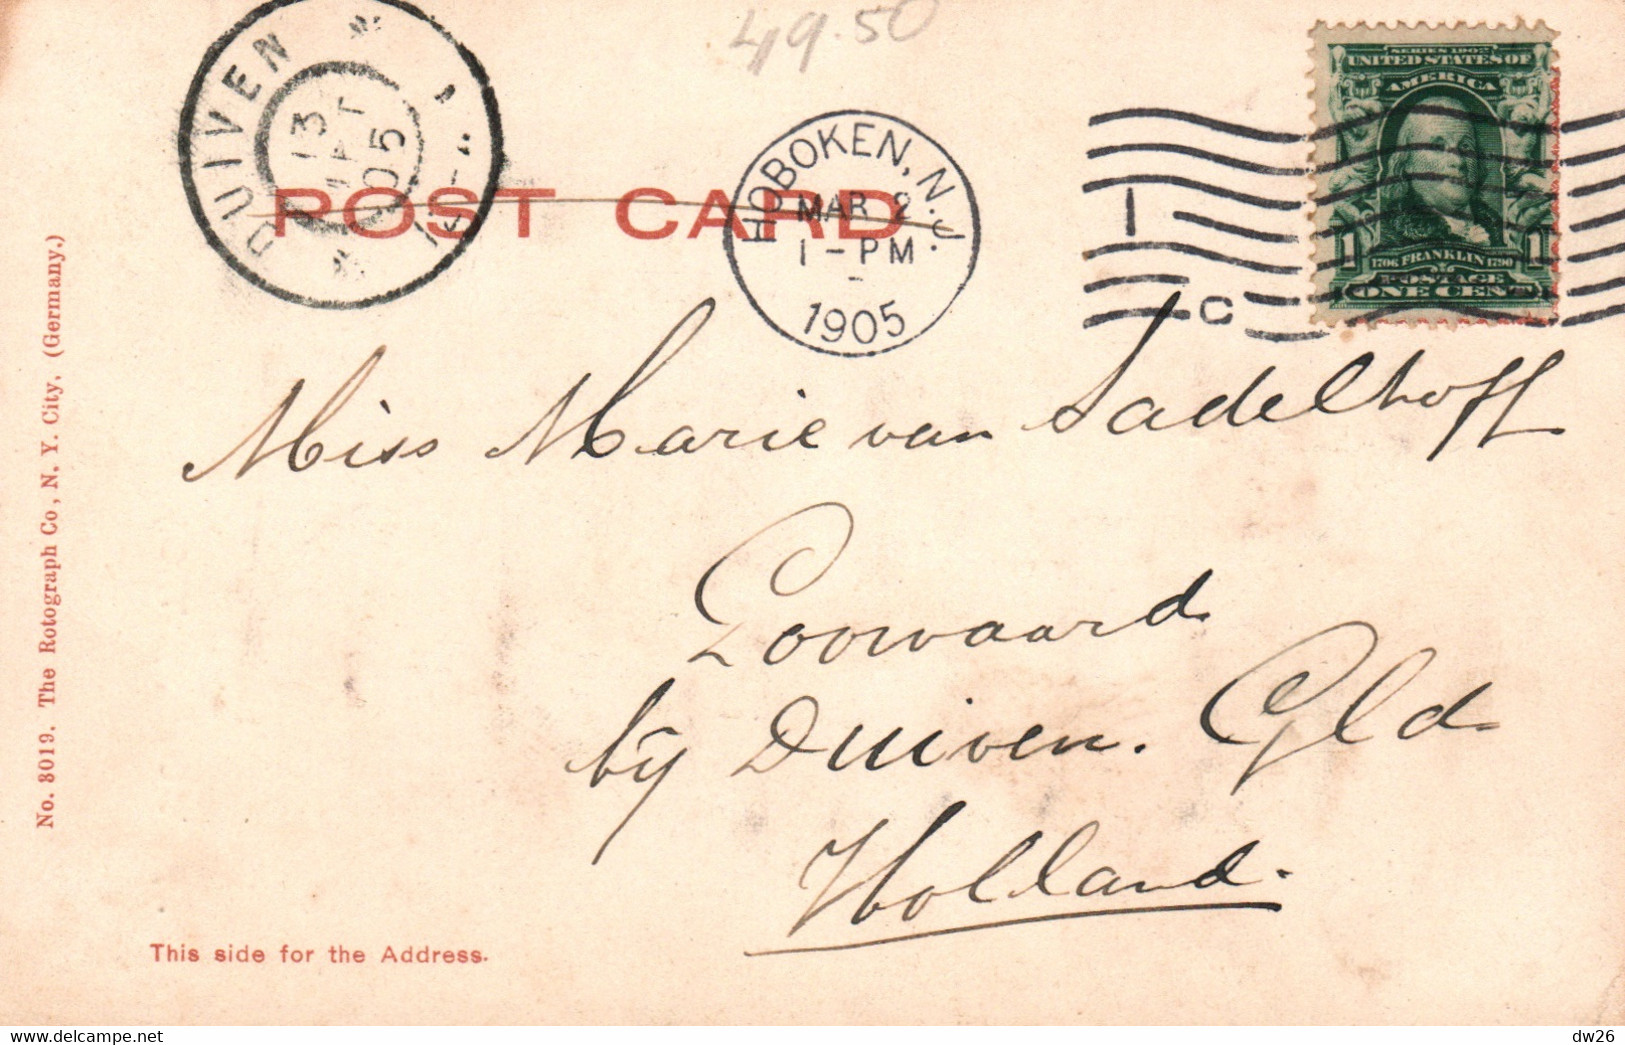 49.50
DUIVEN
13 MRT 05
POST CARD
HOBOKEN, N.J.
MAR 2
1-PM
1905
1
C
SERIES 1902
UNITED STATES OF
AMERICA
1 1706 FRANKLIN 1790 1
POSTAGE
ONE CENT
Miss Marie van Sadelhoff
Loowaard
bij Duiven. Gld
Holland.
This side for the Address.
No. 8019. The Rotograph Co, N. Y. City, (Germany.)
dw26